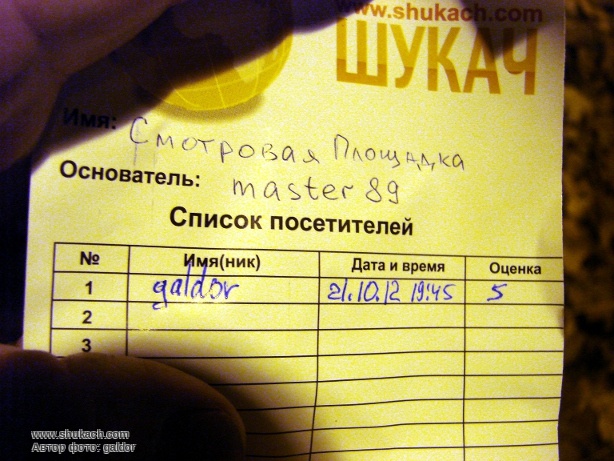 www.shukach.com
ШУКАЧ
Имя: Смотровая Площадка
Основатель: master 89
Список посетителей
№ Имя(ник) Дата и время Оценка
1 galdor 21.10.12 19:45 5
2
3
www.shukach.com
Автор фото: galdor